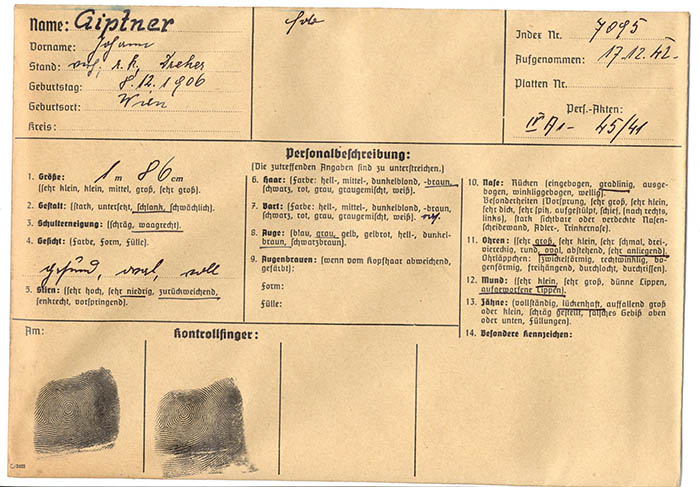 Name: Giptner
Vorname: Johann
Stand: r.k., Dreher
Geburtstag: 8.12.1906
Geburtsort: Wien
Kreis:
Index Nr. 7095
Aufgenommen: 17.12.42.-
Platten Nr.
Pers.-Akten:
IV A1- 45/41
Personalbeschreibung:
(Die zutreffenden Angaben sind zu unterstreichen.)
1. Größe: 1 m 86 cm
(sehr klein, klein, mittel, groß, sehr groß).
2. Gestalt: (stark, untersetzt, schlank, schwächlich).
3. Schulterneigung: (schräg, waagrecht).
4. Gesicht: (Farbe, Form, Fülle).
gesund, oval, voll
5. Stirn: (sehr hoch, sehr niedrig, zurückweichend,
senkrecht, vorspringend).
6. Haar: (Farbe: hell-, mittel-, dunkelblond, -braun,
schwarz, rot, grau, graugemischt, weiß).
7. Bart: (Farbe: hell-, mittel-, dunkelblond, -braun,
schwarz, rot, grau, graugemischt, weiß).
8. Auge: (blau, grau, gelb, gelbrot, hell-, dunkel-
braun, schwarzbraun).
9. Augenbrauen: (wenn vom Kopfhaar abweichend,
gefärbt):
Form:
Fülle:
10. Nase: Rücken (eingebogen, gradlinig, ausge-
bogen, winkliggebogen, wellig).
Besonderheiten (Vorsprung, sehr groß, sehr klein,
sehr dick, sehr spitz, aufgestülpt, schief, (nach rechts,
links), stark sichtbare oder verdeckte Nasen-
scheidewand, Adler-, Trinkernase).
11. Ohren: (sehr groß, sehr klein, sehr schmal, drei-
viereckig, rund, oval, abstehend, sehr anliegend).
Ohrläppchen: (zwickelförmig, rechtwinklig, bo-
genförmig, freihängend, durchlocht, durchrissen).
12. Mund: (sehr klein, sehr groß, dünne Lippen,
aufgeworfene Lippen).
13. Zähne: (vollständig, lückenhaft, auffallend groß
oder klein, schräg gestellt, falsches Gebiß oben
oder unten, Füllungen).
14. Besondere Kennzeichen:
Am:
Kontrollfinger: